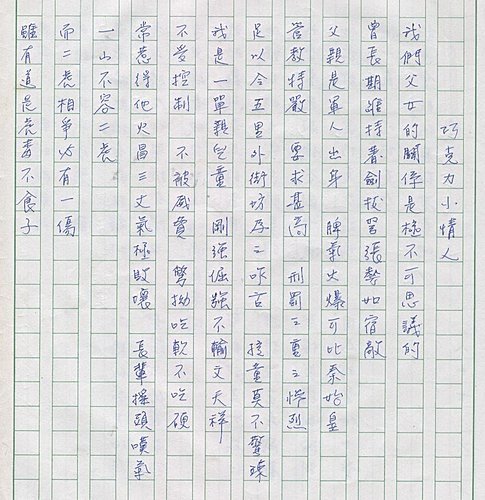 巧克力小情人
我們父女的關係是極不可思議的
曾長期維持著劍拔弩張勢如宿敵
父親是軍人出身 脾氣火爆可比秦始皇
管教特嚴 要求甚高 刑罰之重之慘烈
足以令五里外街坊為之咋舌 孩童莫不驚悚
我是一單親兒童 剛強倔強不輸文天祥
不受控制 不被威脅 彆拗吃軟不吃硬
常惹得他火冒三丈氣極敗壞 長輩搖頭嘆氣
一山不容二虎
而二虎相爭必有一傷
雖有道是虎毒不食子